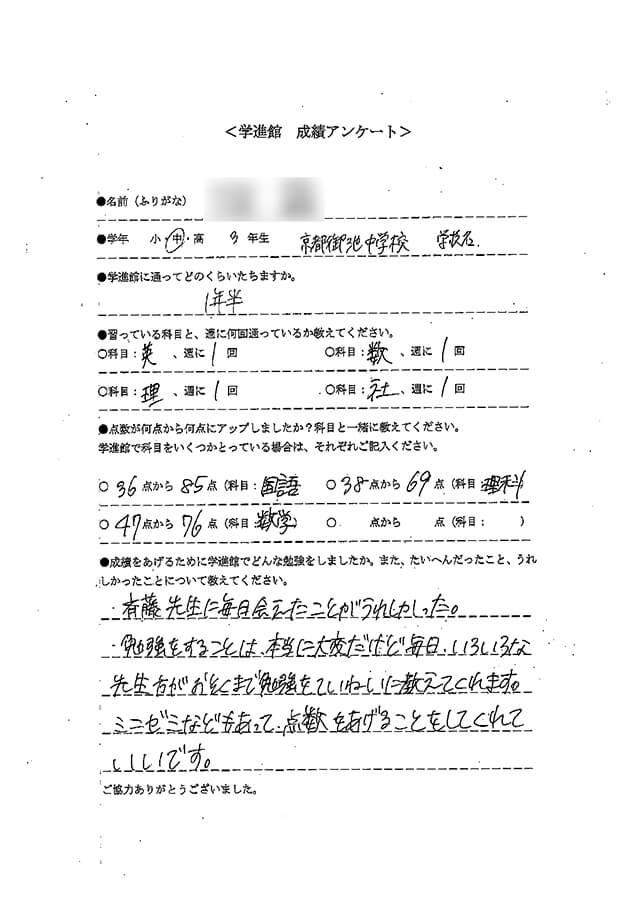 ＜学進館　成績アンケート＞
●名前（ふりがな）
●学年　小・中・高　3年生　京都御池中学校　学校名.
●学進館に通ってどのくらいたちますか。
1年半
●習っている科目と、週に何回通っているか教えてください。
○科目：英、週に1回　○科目：数、週に1回
○科目：理、週に1回　○科目：社、週に1回
●点数が何点から何点にアップしましたか？科目と一緒に教えてください。
学進館で科目をいくつかとっている場合は、それぞれご記入ください。
○ 36点から85点（科目：国語　○ 38点から69点（科目 理科）
○ 47点から76点（科目：数学）　○　点から　点（科目：　）
●成績をあげるために学進館でどんな勉強をしましたか。また、たいへんだったこと、うれ
しかったことについて教えてください。
・斉藤先生に毎日会えたことがうれしかった。
・勉強をすることは、本当に大変だけど毎日、いろいろな
先生方がおそくまで勉強をていねいに教えてくれます。
ミニゼミなどもあって、点数をあげることをしてくれて
いいです。
ご協力ありがとうございました。